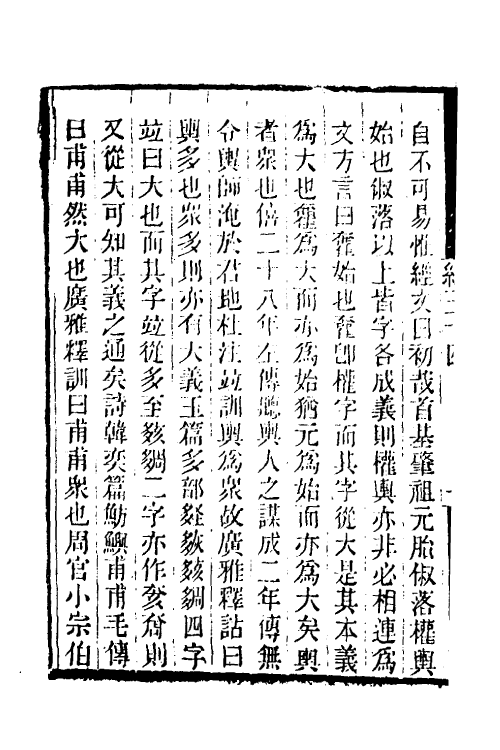 自不可易惟經文曰初哉首基肇祖元胎俶落權輿
始也俶落以上皆字各成義則權輿亦非必相連爲
文方言曰䉵始也䉵卽權字而其字從大是其本義
爲大也䉵爲大而亦爲始猶元爲始而亦爲大矣輿
者眾也僖二十八年左傳聽輿人之謀成二年傳無
令輿師淹於君地杜注竝訓輿爲眾故廣雅釋詁曰
輿多也眾多則亦有大義玉篇多部四字
竝曰大也而其字竝從多至二字亦作則
又從大可知其義之通矣詩韓奕篇魴鱮甫甫毛傳
曰甫甫然大也廣雅釋訓曰甫甫眾也周官小宗伯
經二十四